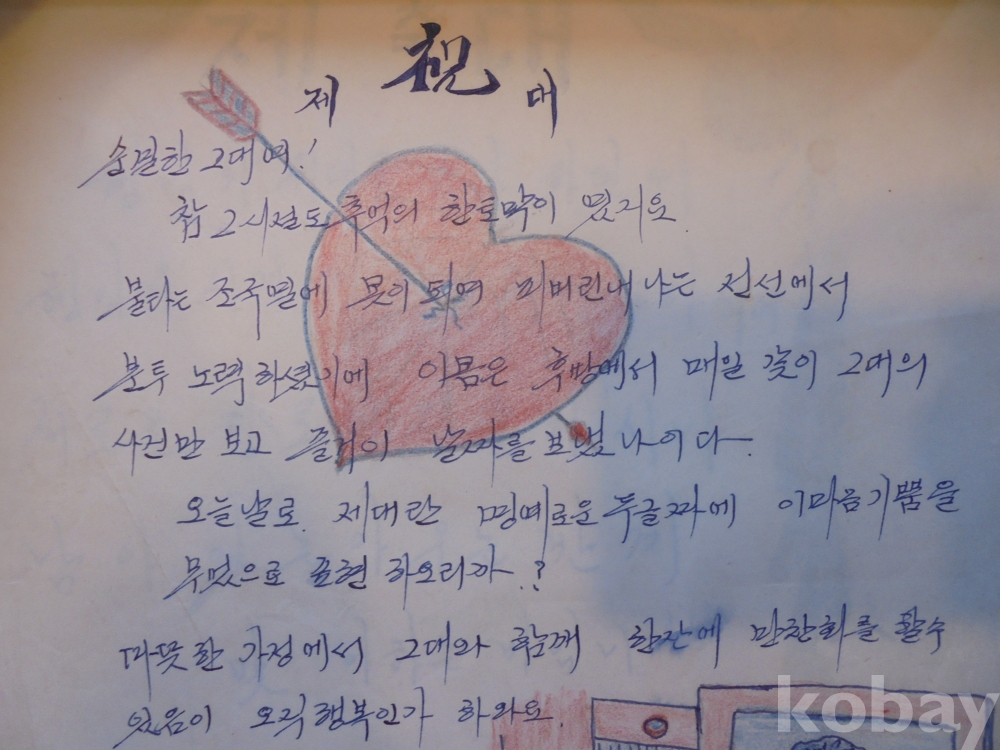 제 祝 대
순결한 그대여!
참 그시절도 추억의 한토막이 였지요
불타는 조국열에 못이 되여 피버린내 나는 전선에서
분투 노력 하셨기에 이몸은 후방에서 매일 같이 그대의
사진만 보고 즐거이 날짜를 보냈나이다
오늘날로 제대란 명예로운 두글짜에 이마음기쁨을
무엇으로 표현 하오리까?
따뜻한 가정에서 그대와 함께 한잔에 만찬회를 할수
있음이 오직행복인가 하와요.
kobay